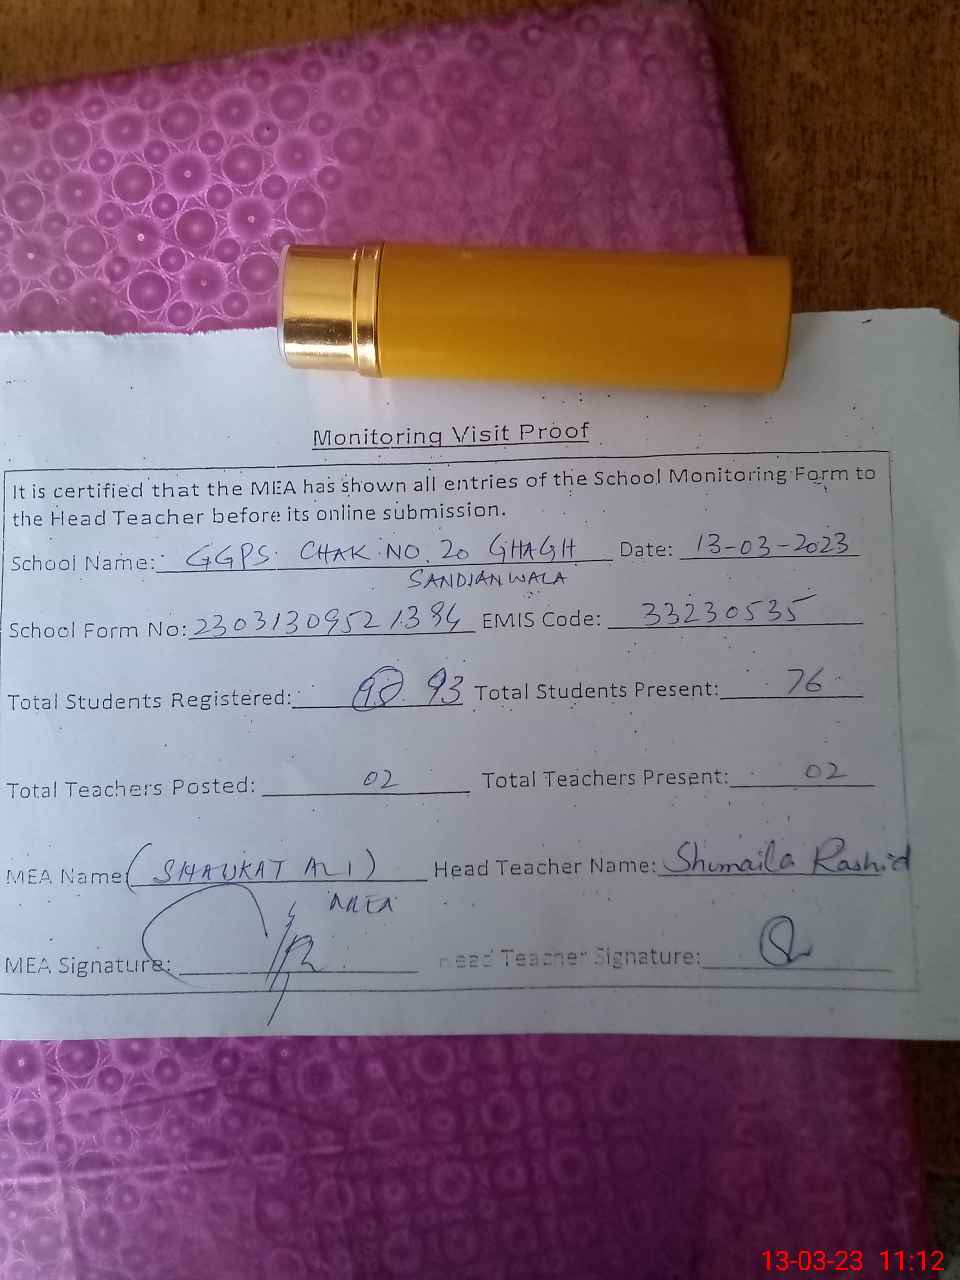 Monitoring Visit Proof
It is certified that the MEA has shown all entries of the School Monitoring Form to
the Head Teacher before its online submission.
School Name: GGPS CHAK NO. 20 GHAGH Date: 13-03-2023
SANDIANWALA
School Form No: 23031309521384 EMIS Code: 33230535
Total Students Registered: 93 Total Students Present: 76
Total Teachers Posted: 02 Total Teachers Present: 02
MEA Name (SHAUKAT ALI) Head Teacher Name: Shumaila Rashid
MEA Signature: Head Teacher Signature:
13-03-23 11:12